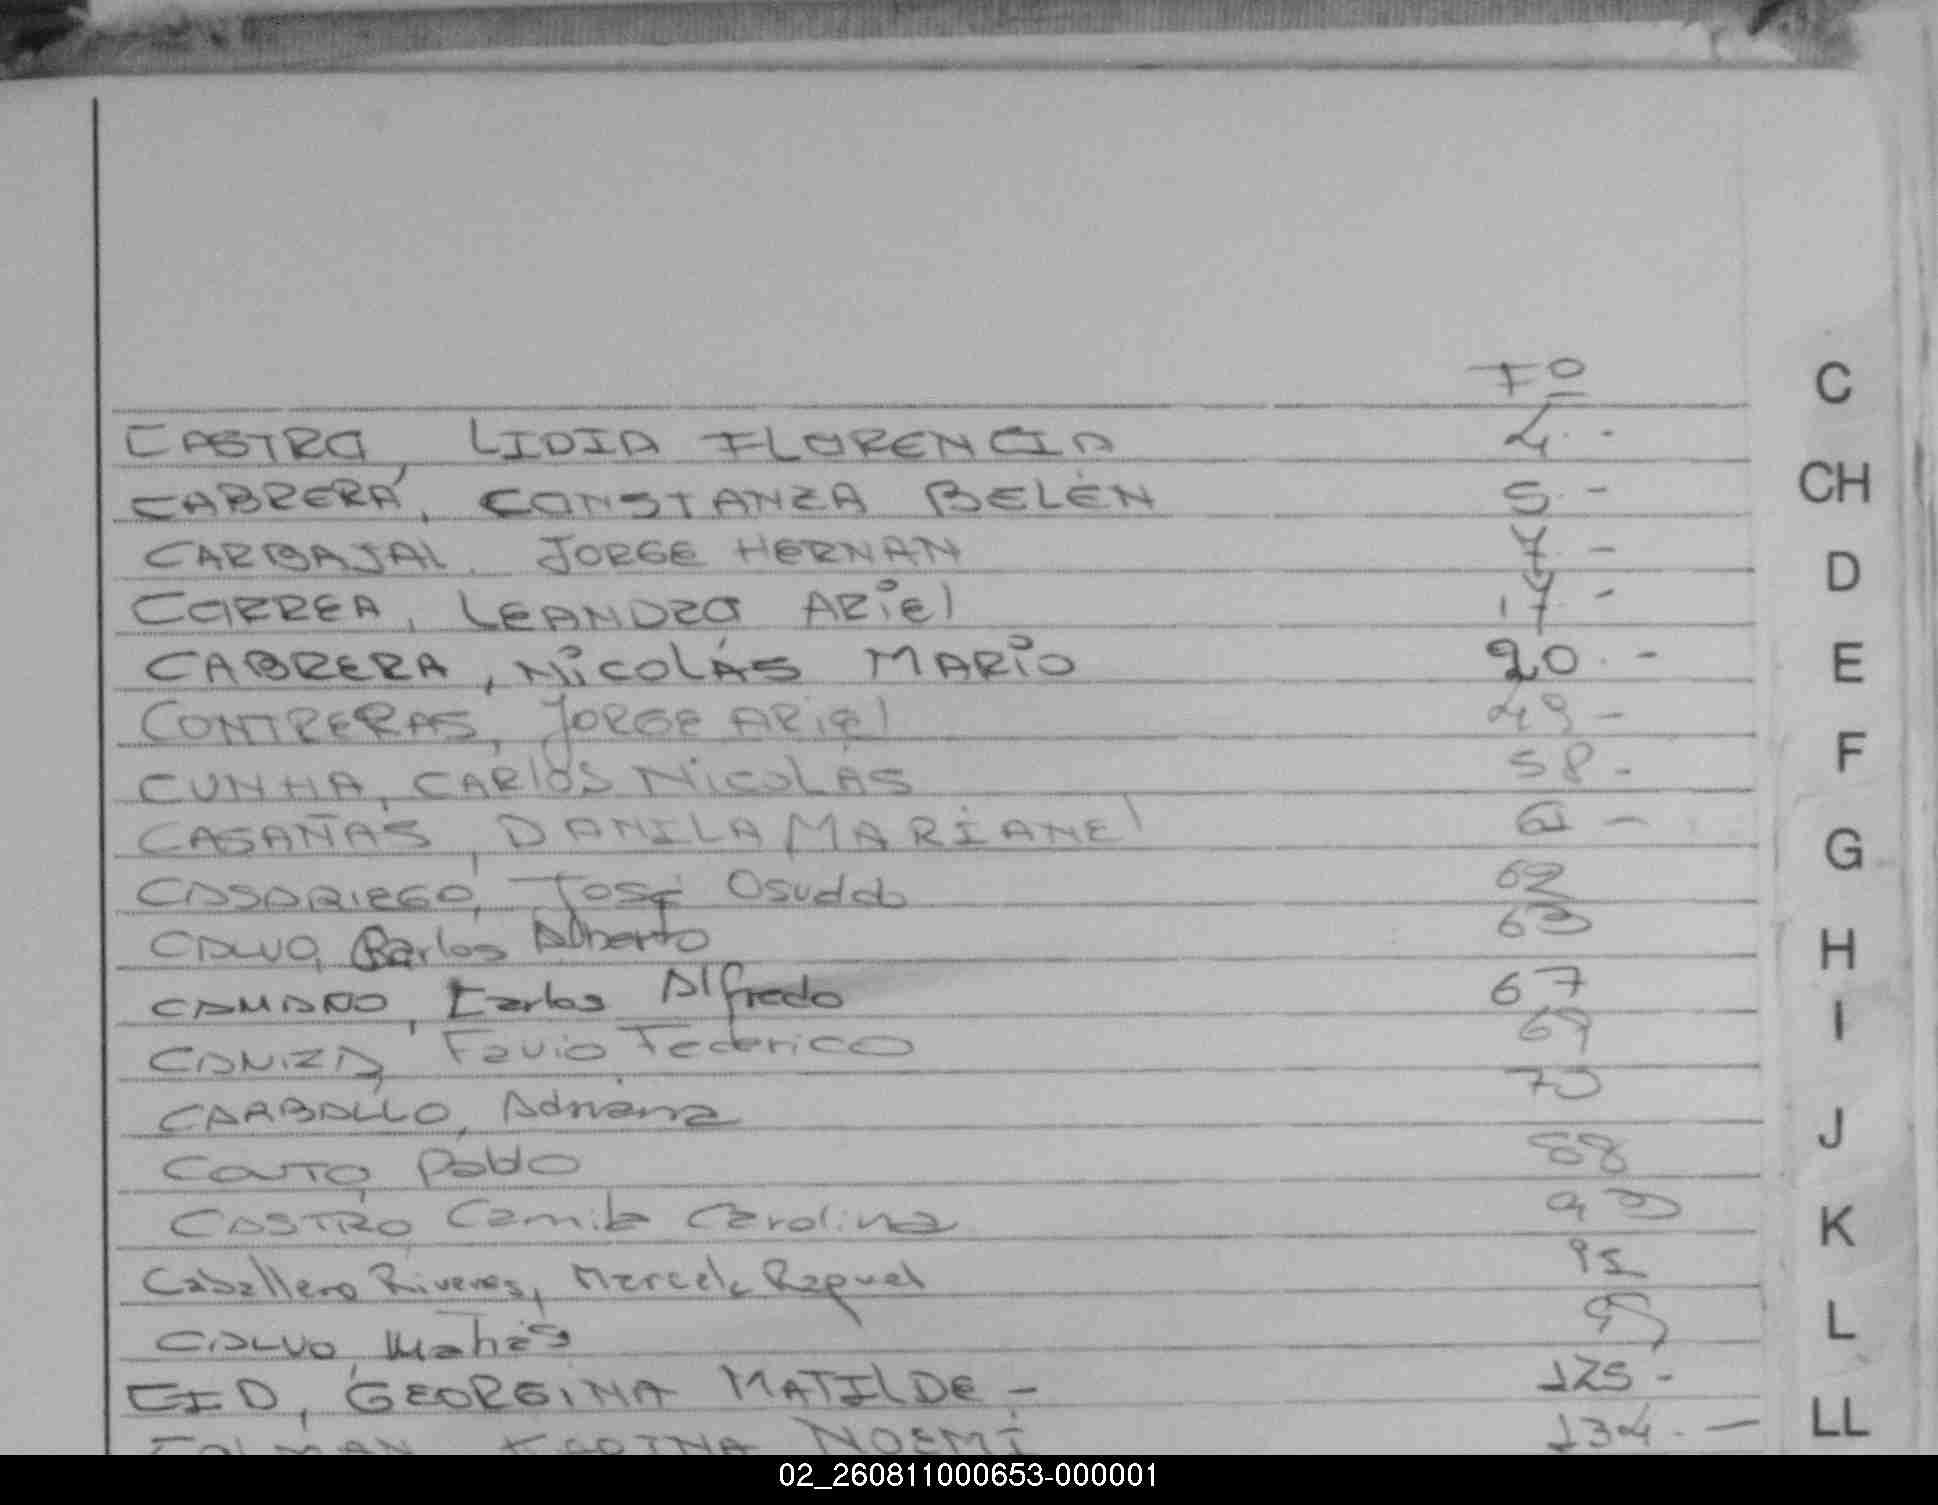 Fº
CASTRO, LIDIA FLORENCIA 4.-
CABRERA, CONSTANZA BELÉN 5.-
CARBAJAL, JORGE HERNAN 7.-
CORREA, LEANDRO ARIEL 17.-
CABRERA, NICOLÁS MARIO 20.-
CONTRERAS, JORGE ARIEL 49-
CUNHA, CARLOS NICOLÁS 58-
CASAÑAS, DANILA MARIANEL 61-
CASARIEGO, José Osvaldo 62
CALVO, Carlos Alberto 63
CAMAÑO, Carlos Alfredo 67
CANIZA, Favio Federico 69
CARBALLO, Adriana 70
COUTO, Pablo 88
CASTRO, Camila Carolina 93
Caballero Riveros, Marcela Raquel 95
CALVO, Matías 99
CID, GEORGINA MATILDE - 125-
NOEMÍ 134.-
C
CH
D
E
F
G
H
I
J
K
L
LL
02_260811000653-000001